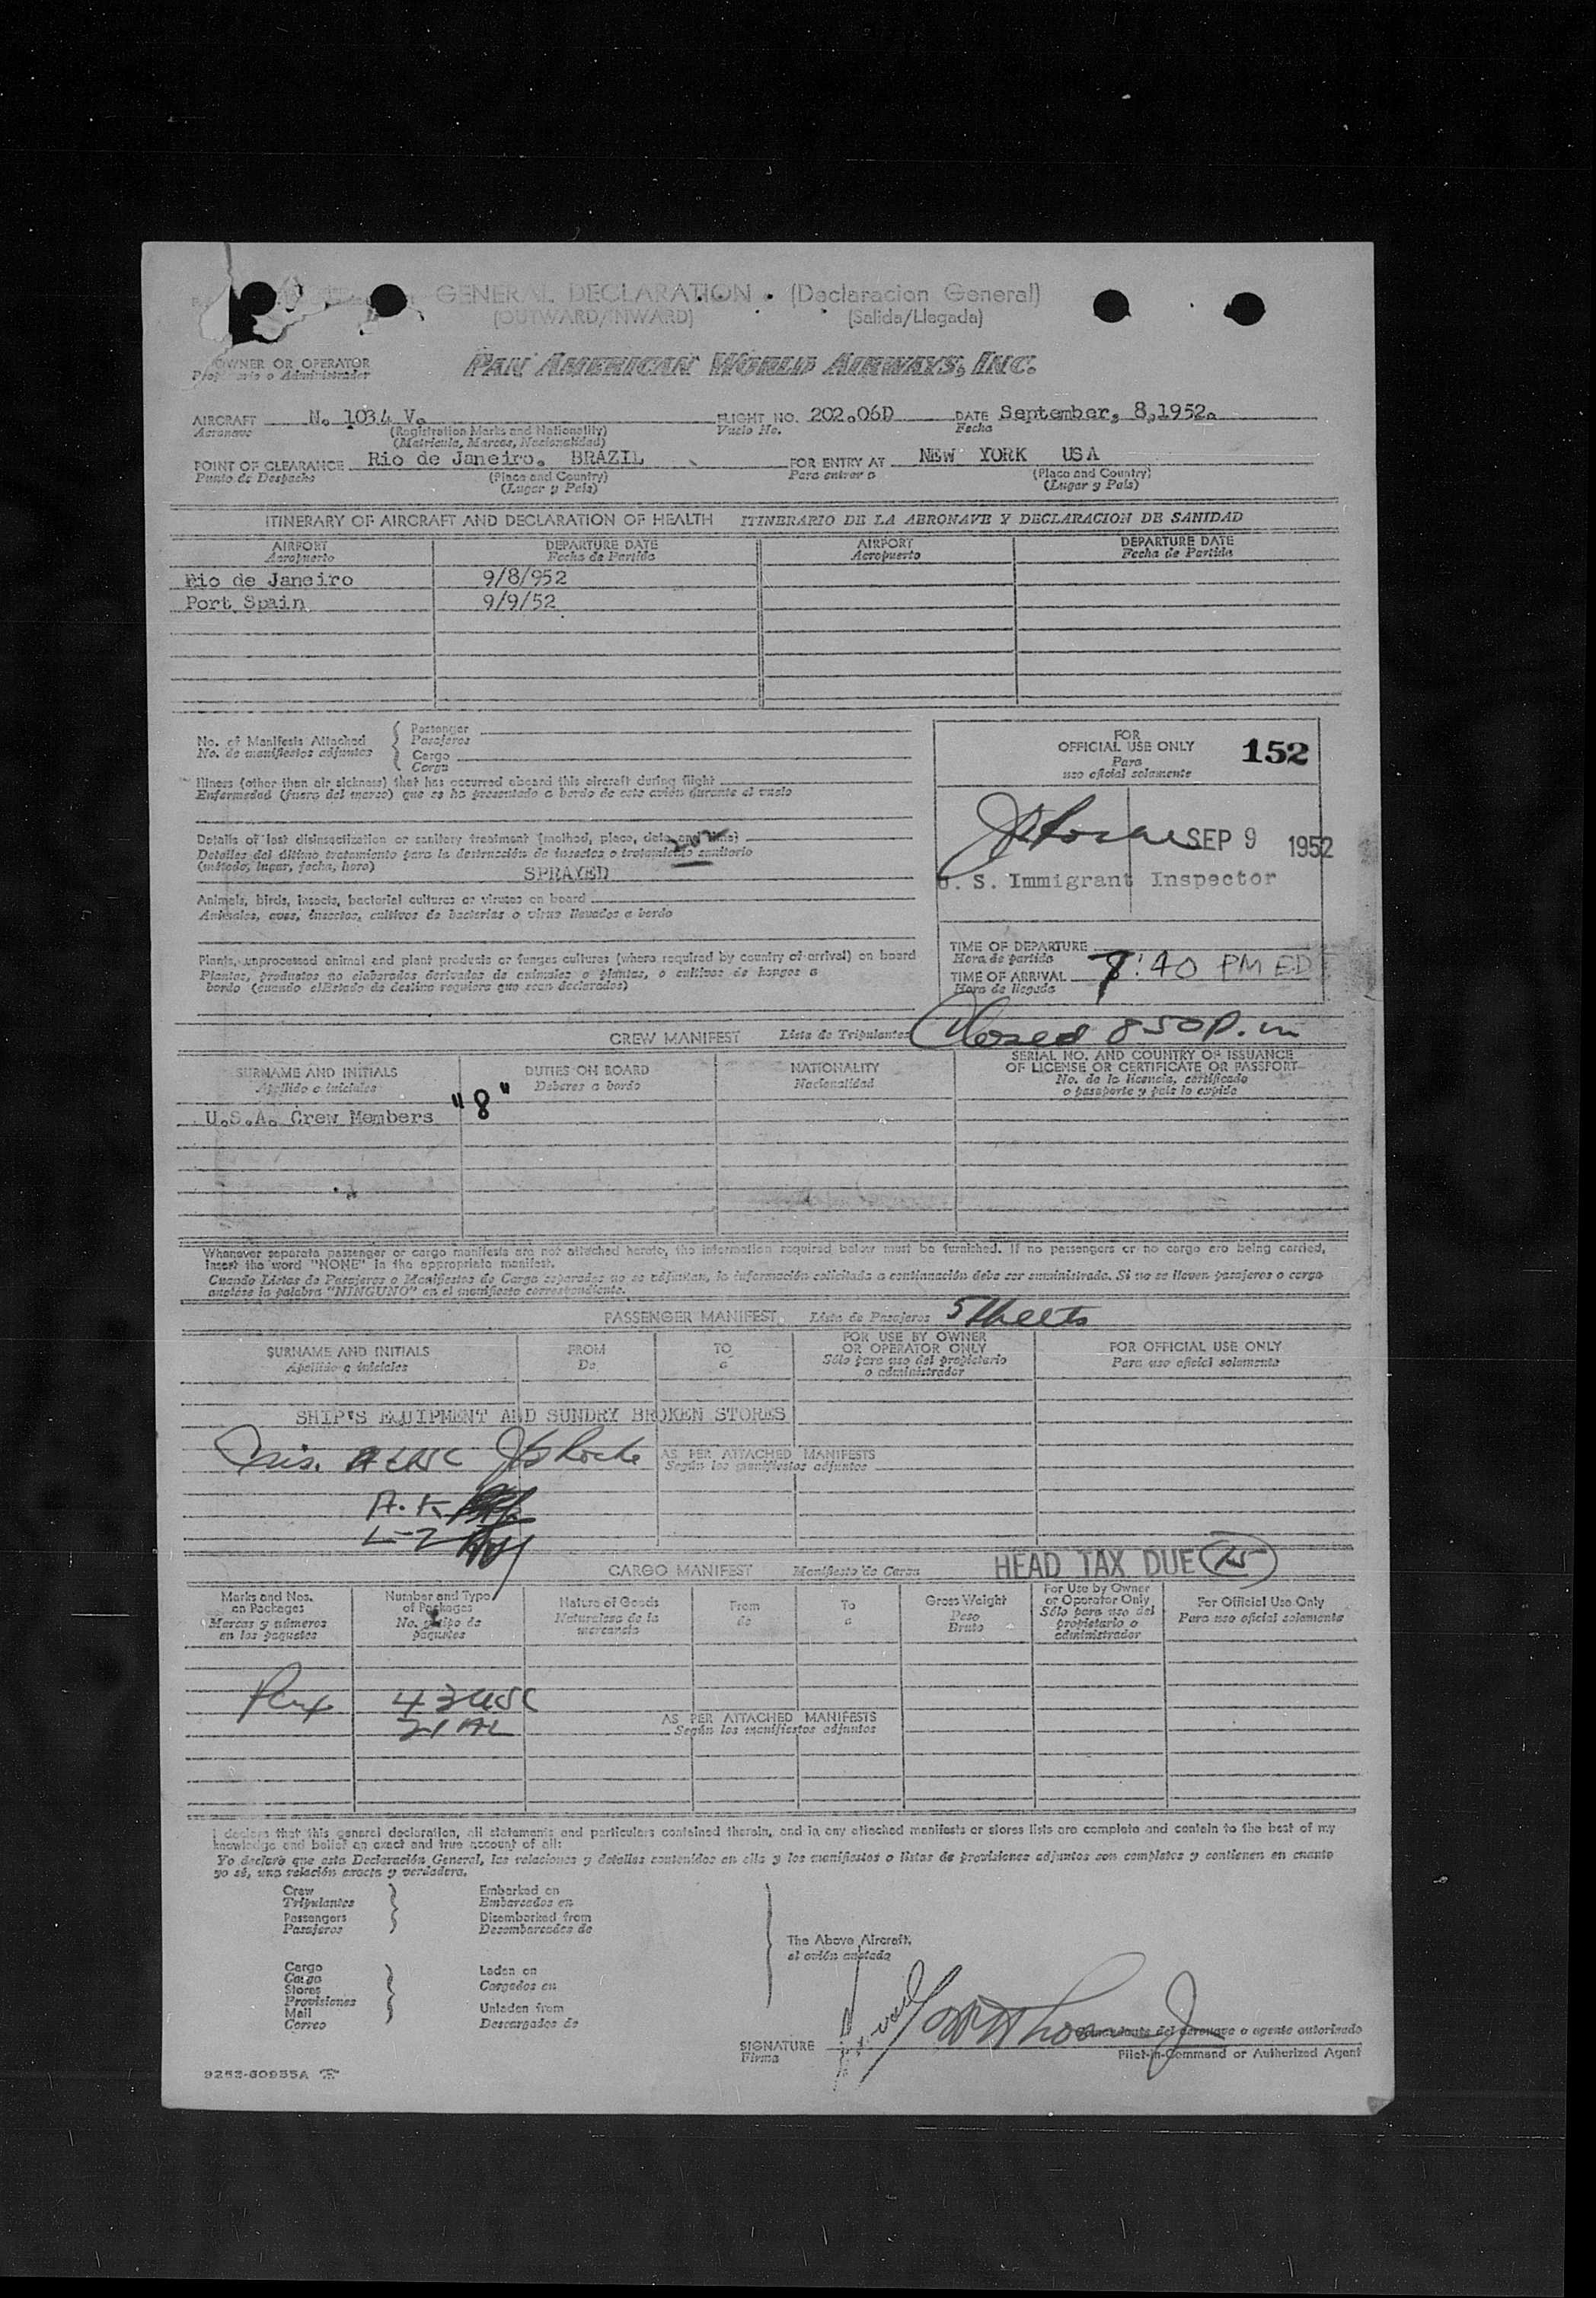 GENERAL DECLARATION . (Declaracion General)
(OUTWARD/INWARD) (Salida/Llegada)
OWNER OR OPERATOR PAN AMERICAN WORLD AIRWAYS, INC.
Propietario o Administrador
AIRCRAFT N. 1034 V. FLIGHT NO. 202.06D DATE September, 8,1952.
Aeronave (Registration Marks and Nationality) Vuelo No. Fecha
(Matricula, Marcas, Nacionalidad)
POINT OF CLEARANCE Rio de Janeiro. BRAZIL FOR ENTRY AT NEW YORK USA
Punto de Despacho (Place and Country) Para entrar a (Place and Country)
(Lugar y País) (Lugar y País)
ITINERARY OF AIRCRAFT AND DECLARATION OF HEALTH ITINERARIO DE LA AERONAVE Y DECLARACION DE SANIDAD
AIRPORT DEPARTURE DATE AIRPORT DEPARTURE DATE
Aeropuerto Fecha de Partida Aeropuerto Fecha de Partida
Rio de Janeiro 9/8/952
Port Spain 9/9/52
No. of Manifests Attached Passenger
No. de manifiestos adjuntos Pasajeros
Cargo
Carga
FOR
OFFICIAL USE ONLY 152
Para
uso oficial solamente
Illness (other than air sickness) that has occurred aboard this aircraft during flight
Enfermedad (fuera del mareo) que se ha presentado a bordo de este avión durante el vuelo
Details of last disinsectization or sanitary treatment (method, place, date and time)
Detalles del último tratamiento para la destrucción de insectos o tratamiento sanitario
(método, lugar, fecha, hora)
SPRAYED
SEP 9 1952
U. S. Immigrant Inspector
Animals, birds, insects, bacterial cultures or viruses on board
Animales, aves, insectos, cultivos de bacterias o virus llevados a bordo
Plants, unprocessed animal and plant products or fungus cultures (where required by country of arrival) on board
Plantas, productos no elaborados derivados de animales o plantas, o cultivos de hongos a
bordo (cuando el Estado de destino requiera que sean declarados)
TIME OF DEPARTURE
Hora de partida
TIME OF ARRIVAL 7:40 PM EDT
Hora de llegada
Closed 8 50 P. m
CREW MANIFEST Lista de Tripulantes
SURNAME AND INITIALS DUTIES ON BOARD NATIONALITY SERIAL NO. AND COUNTRY OF ISSUANCE
Apellido e iniciales Deberes a bordo Nacionalidad OF LICENSE OR CERTIFICATE OR PASSPORT
No. de la licencia, certificado
o pasaporte y país lo expide
U.S.A. Crew Members "8"
Whenever separate passenger or cargo manifests are not attached hereto, the information required below must be furnished. If no passengers or no cargo are being carried,
insert the word "NONE" in the appropriate manifest.
Cuando Listas de Pasajeros o Manifiestos de Carga separados no se adjuntan, la información solicitada a continuación debe ser suministrada. Si no se llevan pasajeros o carga
anótese la palabra "NINGUNO" en el manifiesto correspondiente.
PASSENGER MANIFEST Lista de Pasajeros 5 Sheets
SURNAME AND INITIALS FROM TO FOR USE BY OWNER FOR OFFICIAL USE ONLY
Apellido e iniciales De a OR OPERATOR ONLY Para uso oficial solamente
Sólo para uso del propietario
o administrador
SHIP'S EQUIPMENT AND SUNDRY BROKEN STORES
AS PER ATTACHED MANIFESTS
Según los manifiestos adjuntos
CARGO MANIFEST Manifiesto de Carga HEAD TAX DUE 15
Marks and Nos. Number and Type Nature of Goods From To Gross Weight For Use by Owner For Official Use Only
on Packages of Packages Naturaleza de la de a Peso or Operator Only Para uso oficial solamente
Marcas y números No. y tipo de mercancía Bruto Sólo para uso del
en los paquetes paquetes propietario o
administrador
42 USC
21 AL
AS PER ATTACHED MANIFESTS
Según los manifiestos adjuntos
I declare that this general declaration, all statements and particulars contained therein, and in any attached manifests or stores lists are complete and contain to the best of my
knowledge and belief an exact and true account of all:
Yo declaro que esta Declaración General, las relaciones y detalles contenidos en ella y los manifiestos o listas de provisiones adjuntos son completos y contienen en cuanto
yo sé, una relación exacta y verdadera.
Crew Embarked on
Tripulantes Embarcados en
Passengers Disembarked from
Pasajeros Desembarcados de
The Above Aircraft.
el avión anotado
Cargo Laden on
Carga Cargados en
Stores
Provisiones
Mail Unladen from
Correo Descargados de
SIGNATURE Comandante del aeronave o agente autorizado
Firma Pilot-in-Command or Authorized Agent
9252-60955A